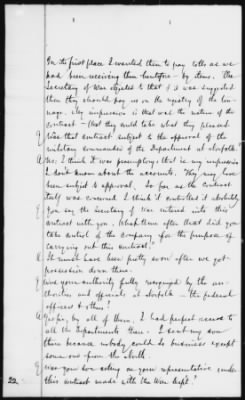 In the first place I wanted them to pay tolls as we
had been receiving them heretofore - by items. The
Secretary of War objected to that & it was suggested
then they should pay us on the registry of the ton-
nage. My impression is that was the nature of the
contract - that they could take what they pleased.
Q Was that contract subject to the approval of the
military commander of the Department at Norfolk.
A Yes; I think it was peremptory; that is my impression
I don't know about the accounts. They may have
been subject to approval. So far as the contract
itself was concerned I think it controlled it absolutely
Q You say the Secretary of War entered into this
contract with you. What time after that did you
take control of the company for the purpose of
carrying out this contract?
A It must have been pretty soon after we got
possession down there.
Q Was your authority fully recognized by the au-
thorities and officials at Norfolk - the federal
officers & others?
A Yes sir, by all of them. I had perfect access to
all the Departments there. I sent my son
there because nobody could do business except
some one from the North.
Q Was your son acting as your representative under
this contract made with the War Dept.?
22